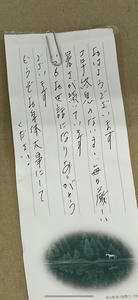 おはようございます
コロナ終息のない 毎日が厳しい
暑さが続いています
いつもお世話になりありがとう
ございます
どうぞお身体大事にして
ください